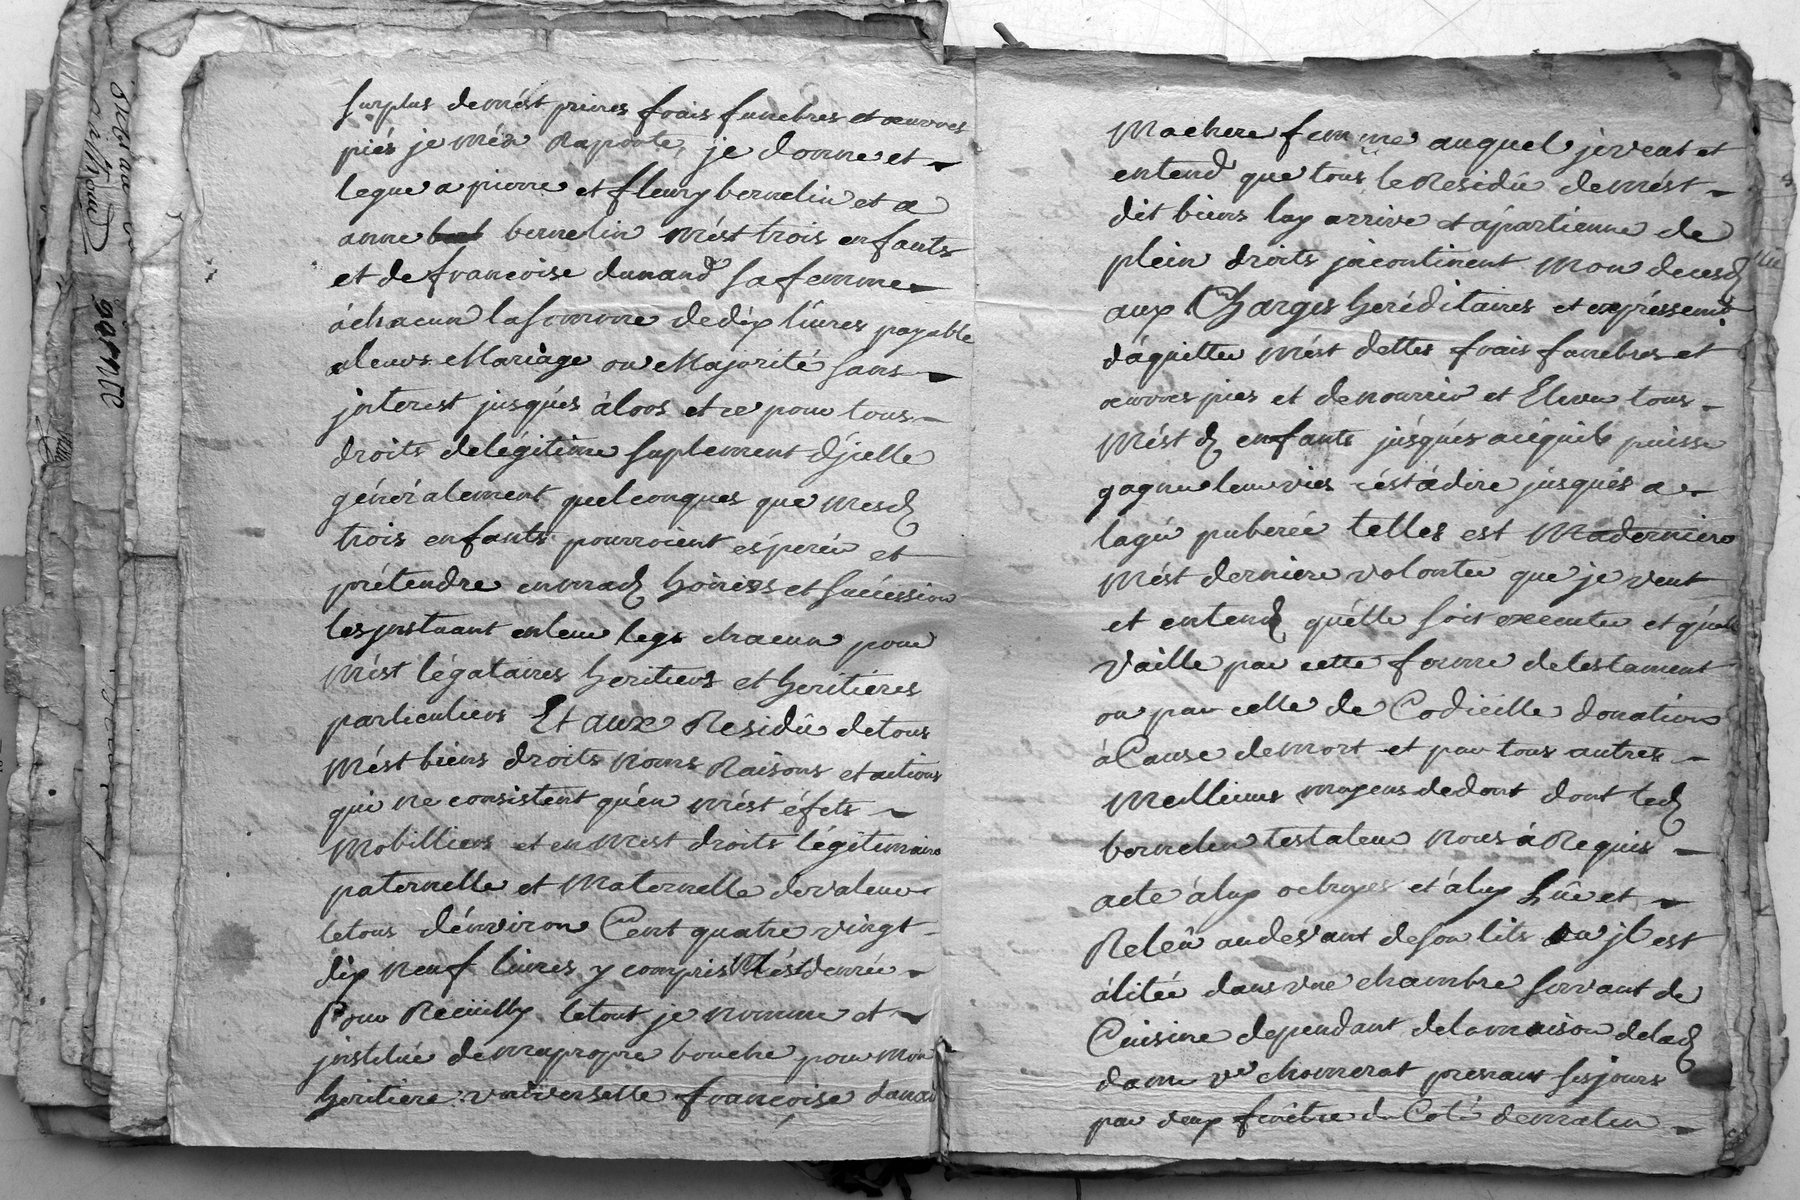 surplus demést prieres frais funebres et œuvres
piés je mén raporte, je donne et
legue a pierre et fleury bernelin et a
anne bernelin mést trois enfants
et de francoise dunand sa femme
áchacun lasomme dedix livres payable
aleurs Mariage ou Majorité sans
jnterest jusqués álors et ce pour tous
droits delégitime suplement djcelle
généralement quelconques que mesd
trois enfants pourroient espérér et
prétendre enmad hoiries et succession
les jnstuant enleur legs chacun pour
mést légataires heritiers et heritieres
particuliers Et aux Residû detous
mést biens droits noms Raisons et actions
qui ne consistent quén mést éfets
Mobilliers et en mest droits légitimaire
paternelle et Maternelle devaleur
letous dénviron Cent quatre vingt
dix neuf livres y compris Mést denrée
Pour Recüilly letout je nomme et
jnstitue demapropre bouche pour mon
heritiere universelle francoise dunand
Machere femme auquel je veut et
entend que tous le Residû demést
dit biens luy arrive et apartienne de
plein droits jncontinent mon decesd
aux Charges heréditaires et expréssemt
dáquitter mést dettes frais funebres et
œuvres pies et denourrir et Elever tous
Mést d enfants jusqués acéquils puisse
gagner leur vies cést ádire jusqués a
lagé puberée telles est Maderniere
Mést derniere volontée que je veut
et entend quélle soit executée et quelle
Vaille par cette forme detestament
ou par celle de Codicille donation
á Cause demort et par tous autres
Meilleurs moyens dedont dont led
bernelin testateur nous á Requis
acte áluy octroyer et áluy Lüe et
Releû audevant deson lits ou jl est
álitée dans une chambre servant de
Cuisine dependant delamaison delad
dame ve chomerat prenant sesjours
par deux fenêtre du Coté dematin